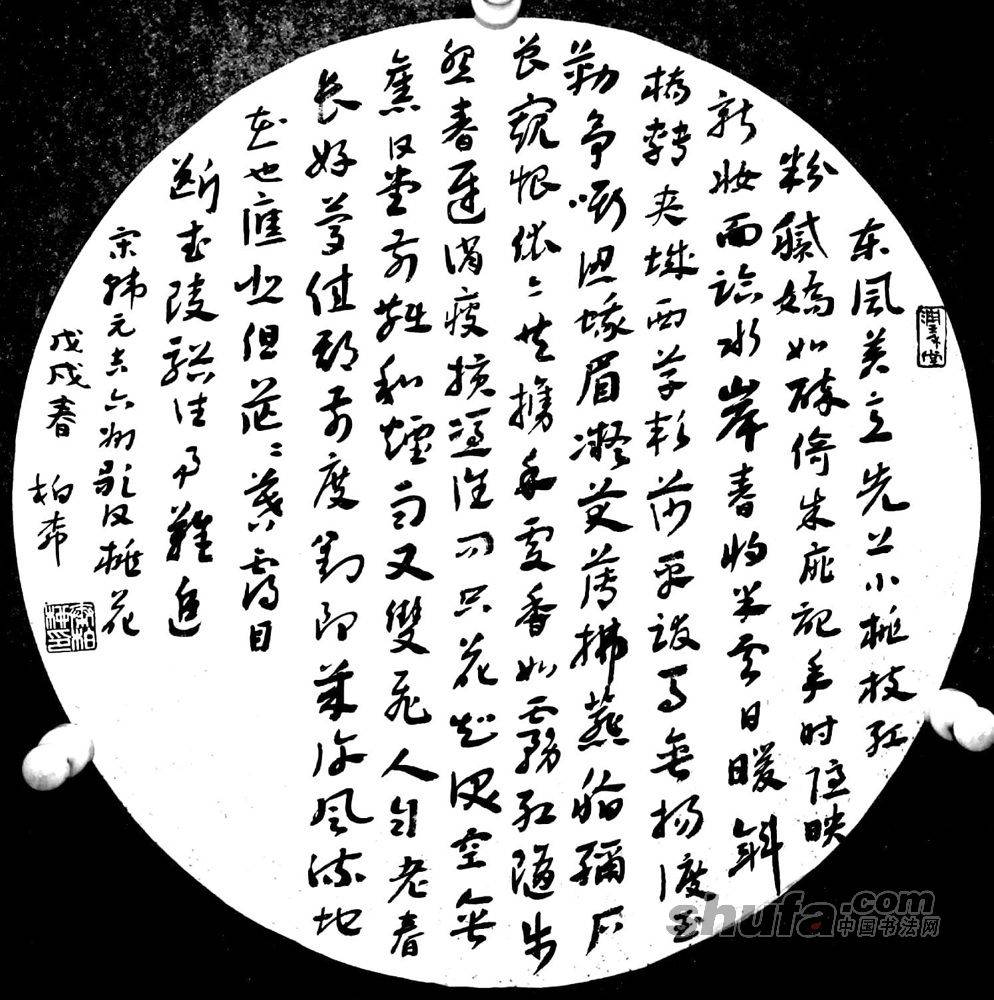 东风着意先上小桃枝红
粉腻嬌如醉倚朱扉记年时隐映
新妆面临水岸春将半云日暖斜
桥轉夹城西草软莎平跋马垂杨渡玉
勒争嘶认蛾眉凝笑薄拂燕脂绣户
曾窥恨依依共携手处香如雾红随步
怨春迟消瘦损凭谁问只花知泪空垂
舊日堂前燕和烟雨又雙飞人自老春
长好梦佳期前度刘郎几许风流地
花也應悲但茫茫暮霭目
断武陵谿往事難追
宋韩元吉六州歌头桃花
戊戌春 柏
shufa.com
中国书法网